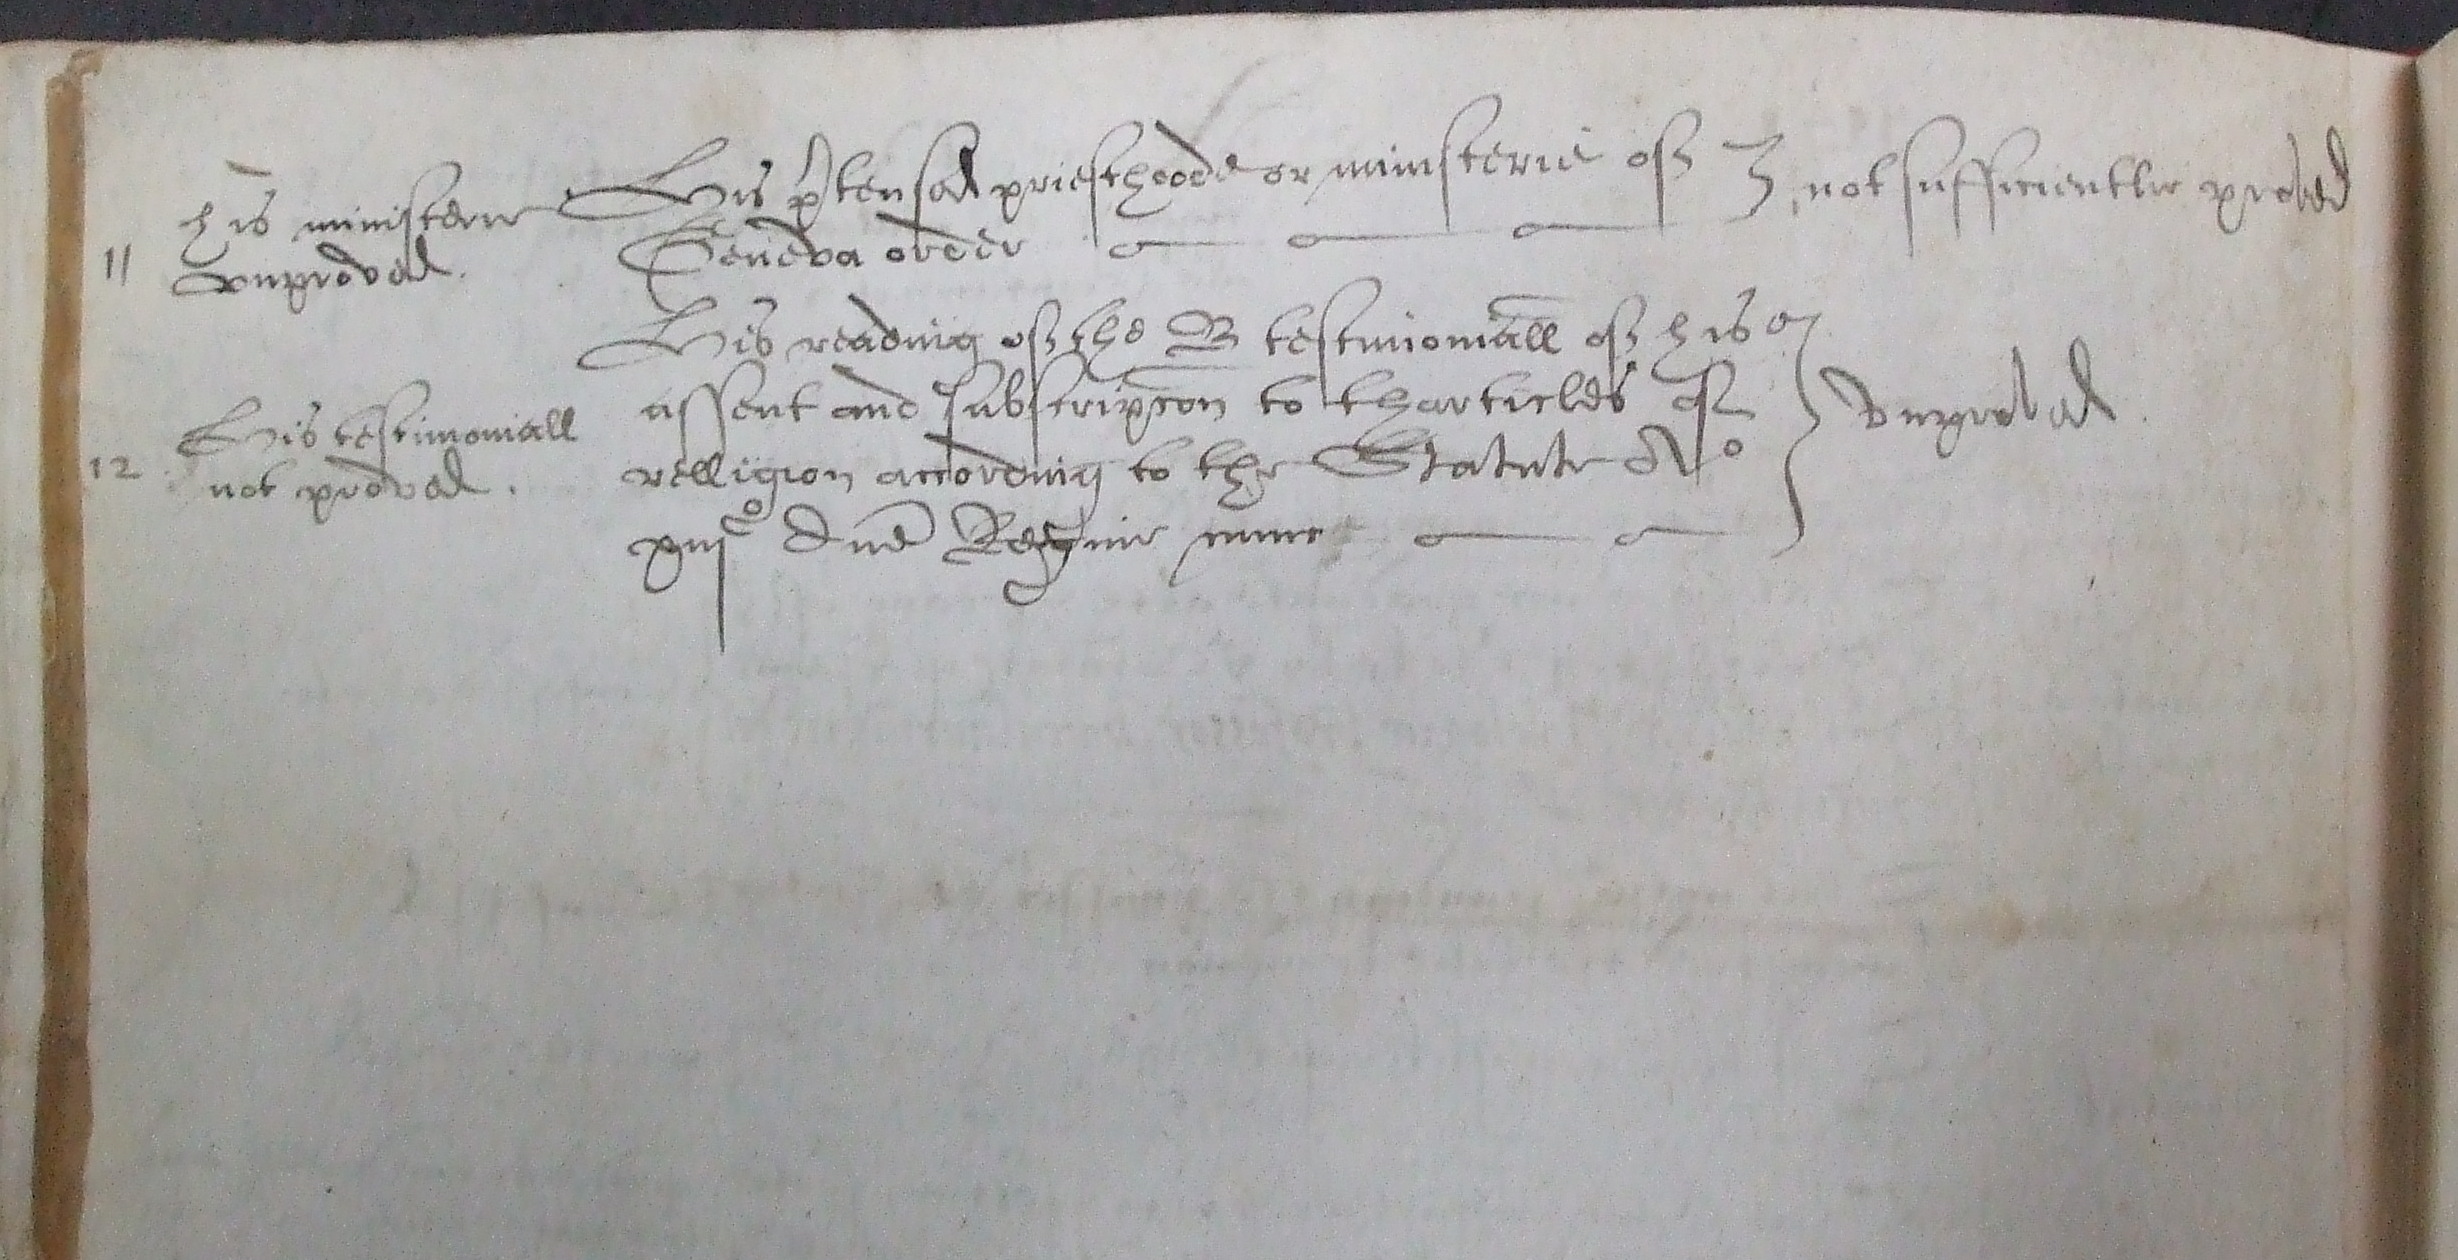 his ministerie
11 vnproved.
His p̄tensed priesthoode or ministerie of
Geneva order
not sufficientlie proved
His testimoniall
12 not proved.
His reading of the B testimoniall of his
assent and subscripcon to tharticles of
relligion according to the Statute Ao
xiijo dne Regine nunc
vnproved.